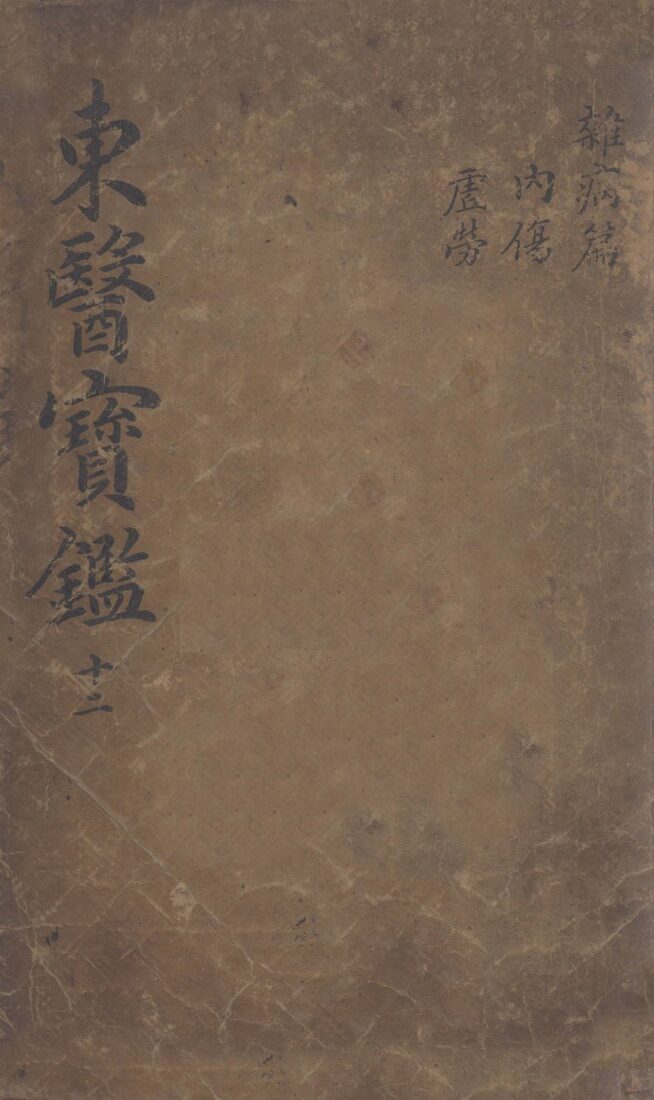 雜病篇
內傷
虛勞
東醫寶鑑 十二